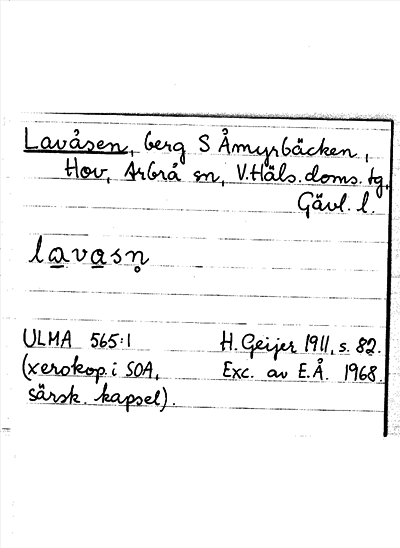 Lavåsen, berg S Åmyrbäcken,
Hov, Arbrå sn, V. Häls. doms. tg,
Gävl. l.
la̲va̲sn̥
ULMA 565:1 H. Geijer 1911, s. 82.
(xerokop. i SOA, Exc. av E.Å. 1968.
särsk. kapsel).